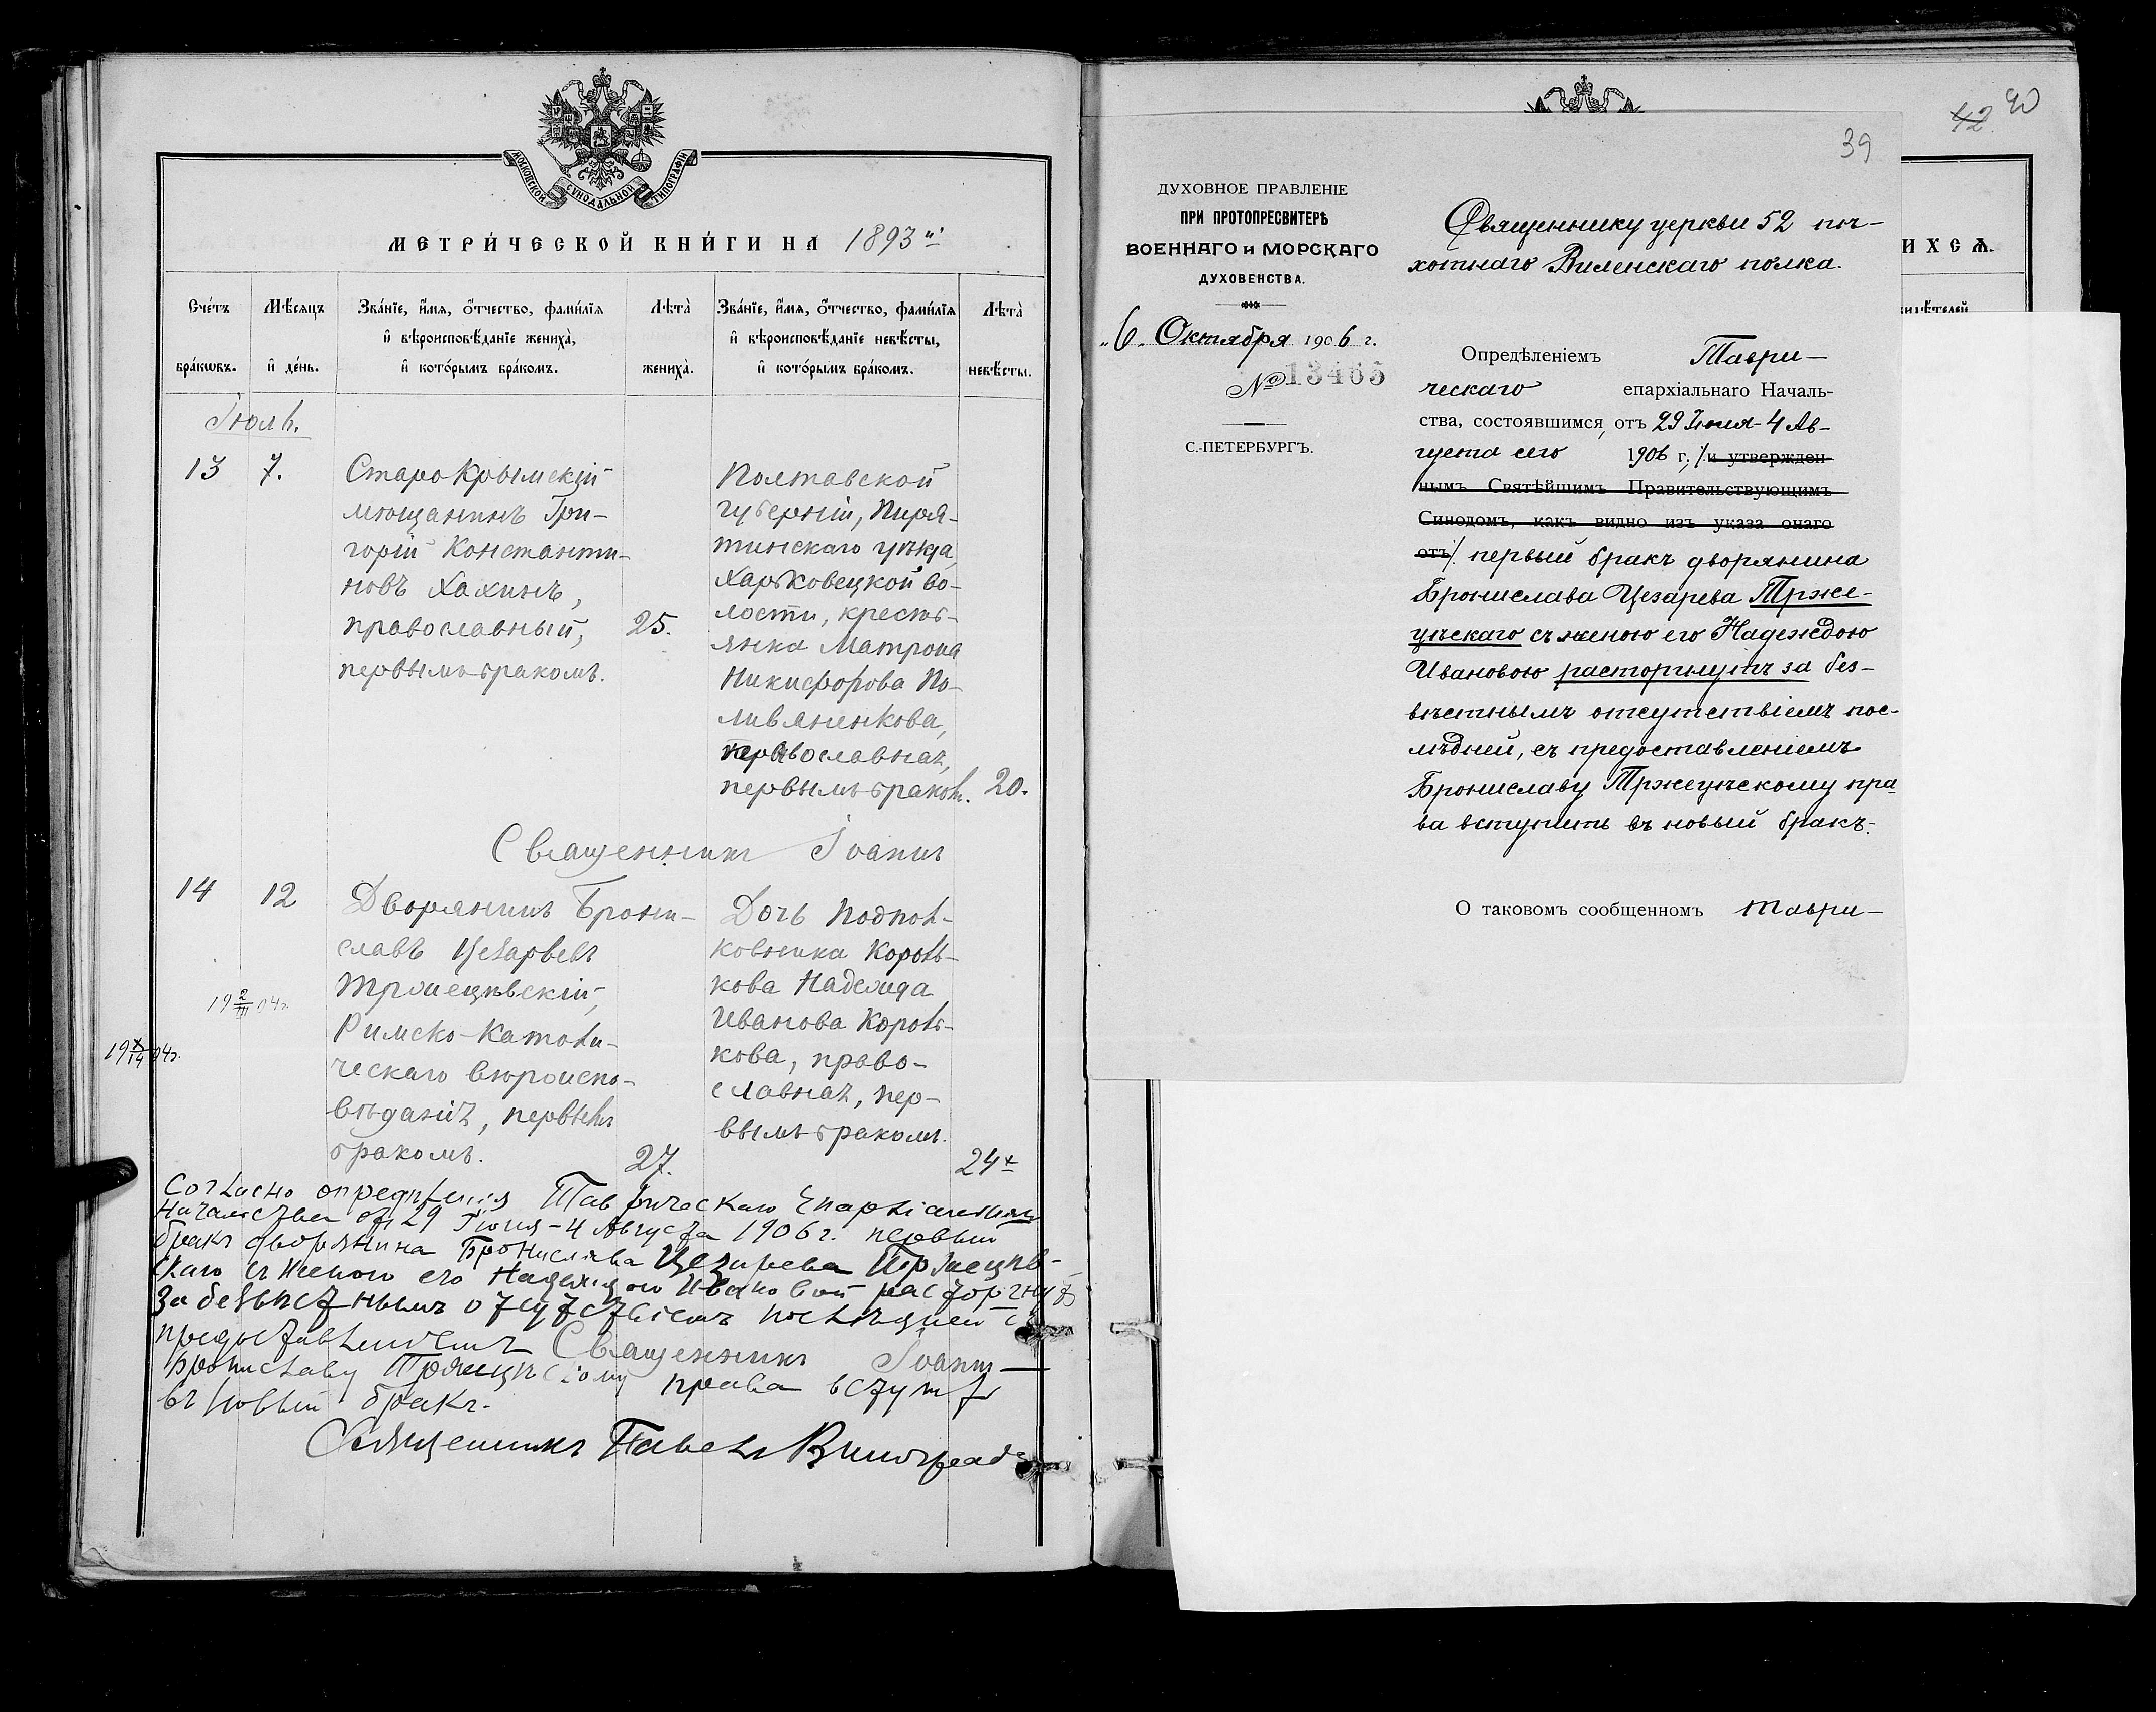 МОСКОВСКОЙ СѴНОДАЛЬНОЙ ТИПОГРАФІИ
МЕТРИ́ЧЕСКОЙ КНИ́ГИ НА 1893 й
Сче́тъ бра́кωвъ.
Мѣ́сяцъ и҆ де́нь.
Зва́нїе, и҆́мя, ѻ҆́тчество, фами́лїя
и҆ вѣроисповѣ́данїе жениха̀,
и҆ кото́рымъ бра́комъ.
Лѣта̀ жениха̀.
Зва́нїе, и҆́мя, ѻ҆́тчество, фами́лїя
и҆ вѣроисповѣ́данїе невѣ́сты,
и҆ кото́рымъ бра́комъ.
Лѣта̀ невѣ́сты.
Іюль.
13 7.
Старо Крымскій
мѣщанинъ Гри-
горій Константи-
новъ Хахинъ,
православный,
первымъ бракомъ.
25.
Полтавской
губерніи, Пиря-
тинскаго уѣзда,
Харьковецкой во-
лости, кресть-
янка Матрона
Никифорова По-
ливяненкова,
православная,
первымъ браком.
20.
Священникъ Іоаннъ
14 12
19 2/III 04 г.
19 X/14 04 г.
Дворянинъ Брони-
славъ Цезарьевъ
Тржецѣвскій,
Римско-Католи-
ческаго вѣроиспо-
вѣданія, первымъ
бракомъ.
27.
Дочь Подпол-
ковника Король-
кова Надежда
Иванова Король-
кова, право-
славная, пер-
вымъ бракомъ.
24
Согласно опредѣленія Таврическаго Епархіальнаго
Начальства от 29 Іюня-4 Августа 1906 г. первый
бракъ дворянина Бронислава Цезарева Тржецѣв-
скаго съ женою его Надеждою Ивановой расторгнутъ
за безвѣстнымъ отсутствіемъ послѣдней съ
предоставленіемъ
Священникъ Іоаннъ
Брониславу Тржецѣвскому права вступить
въ новый бракъ.
Священникъ Павелъ Виноградо
42 40
39
ИХСѦ.
ДУХОВНОЕ ПРАВЛЕНІЕ
ПРИ ПРОТОПРЕСВИТЕРѢ
ВОЕННАГО и МОРСКАГО
ДУХОВЕНСТВА.
„6„ Октября 1906 г.
№ 13465
С.-ПЕТЕРБУРГЪ.
Священнику церкви 52 пѣ-
хотнаго Виленскаго полка.
Опредѣленіемъ Таври-
ческаго епархіальнаго Началь-
ства, состоявшимся, отъ 29 Іюня-4 Ав-
густа сего 1906 г., и утвержден-
нымъ Святѣйшимъ Правительствующимъ
Синодомъ, какъ видно изъ указа онаго
отъ первый бракъ дворянина
Бронислава Цезарева Трже-
цѣскаго съ женою его Надеждою
Ивановою расторгнутъ за без-
вѣстнымъ отсутствіемъ пос-
лѣдней, съ предоставленіемъ
Брониславу Тржецѣскому пра-
ва вступить въ новый бракъ.
О таковомъ сообщенномъ Таври-